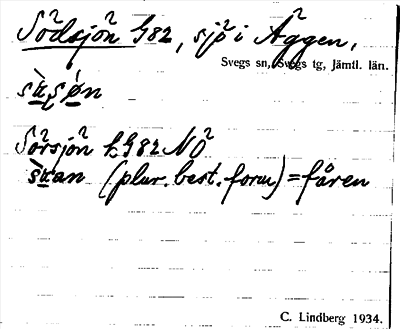 Södsjön G82, sjö i Äggen,
Svegs sn, Svegs tg, Jämtl. län.
sùsøn
Sörsjön LG82 NÖ
sùan (plur. best. form) = fåren
C. Lindberg 1934.